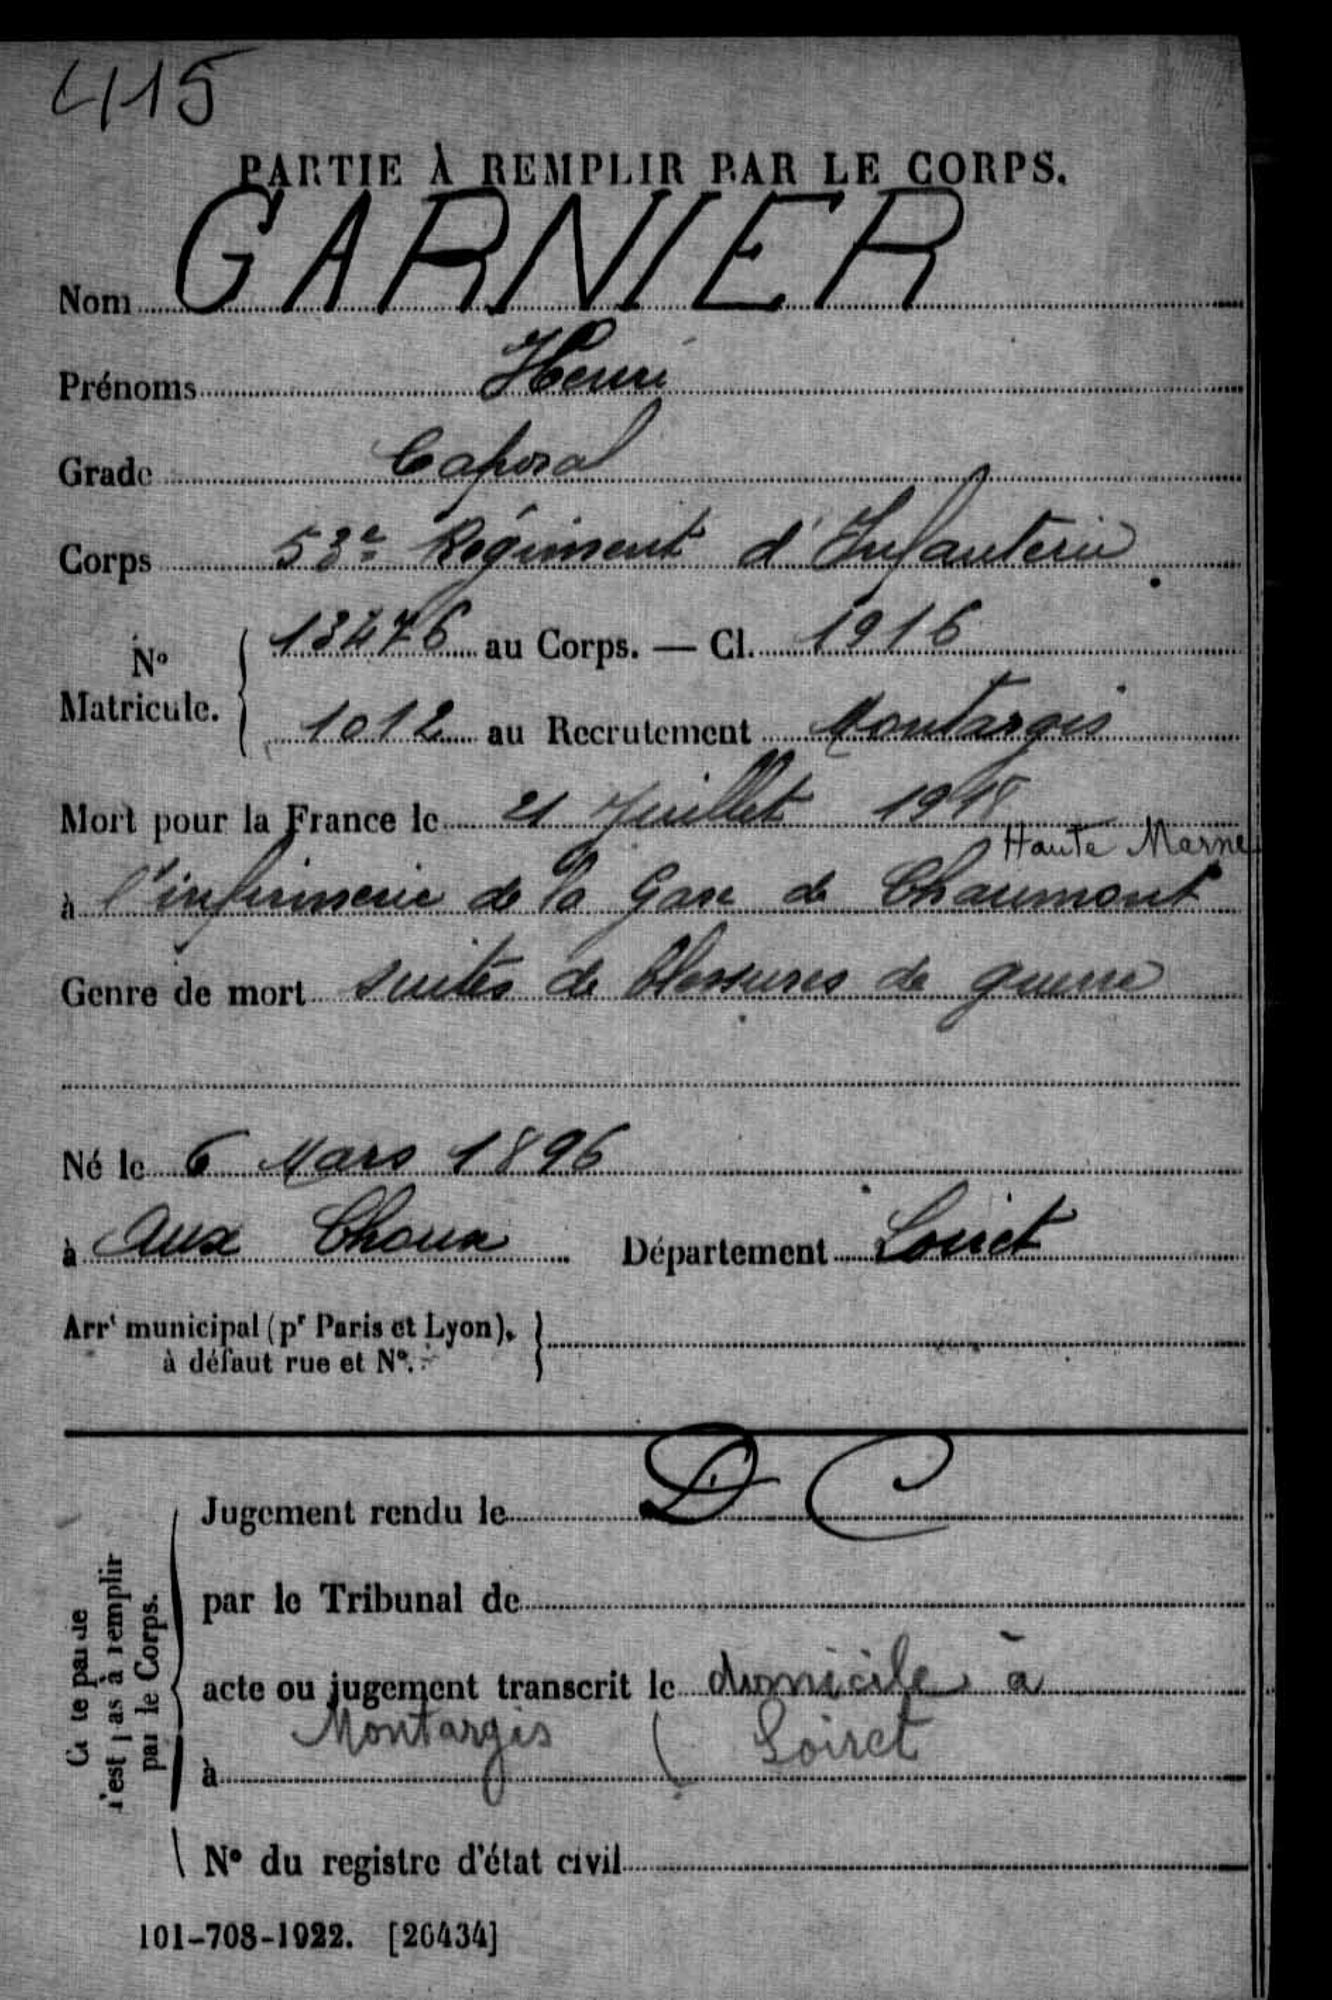 415
PARTIE À REMPLIR PAR LE CORPS.
Nom GARNIER
Prénoms Henri
Grade Caporal
Corps 53e Régiment d'Infanterie
No Matricule. 13476 au Corps. — Cl. 1916
1012 au Recrutement Montargis
Mort pour la France le 21 Juillet 1918
Haute Marne
à l'infirmerie de la Gare de Chaumont
Genre de mort suites de blessures de guerre
Né le 6 Mars 1896
à aux Choux Département Loiret
Arrt municipal (pr Paris et Lyon),
à défaut rue et N°.
D C
Jugement rendu le
par le Tribunal de
acte ou jugement transcrit le domicile à
Montargis ( Loiret
à
N° du registre d'état civil
Cette partie
n'est pas à remplir
par le Corps.
101-708-1922. [26434]